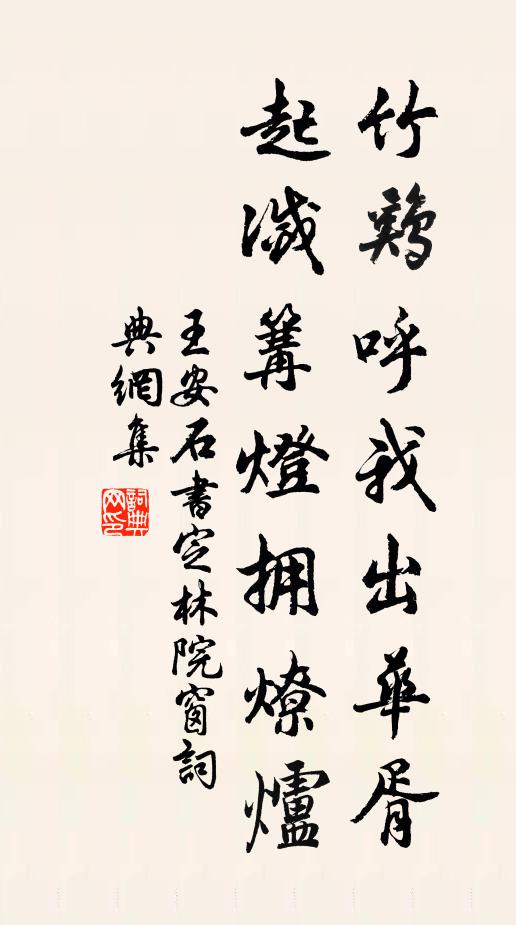 竹鷄呼我出華胥
起滅篝燈拥燎爐
王安石書定林院窗詞
典網集
詞典网印